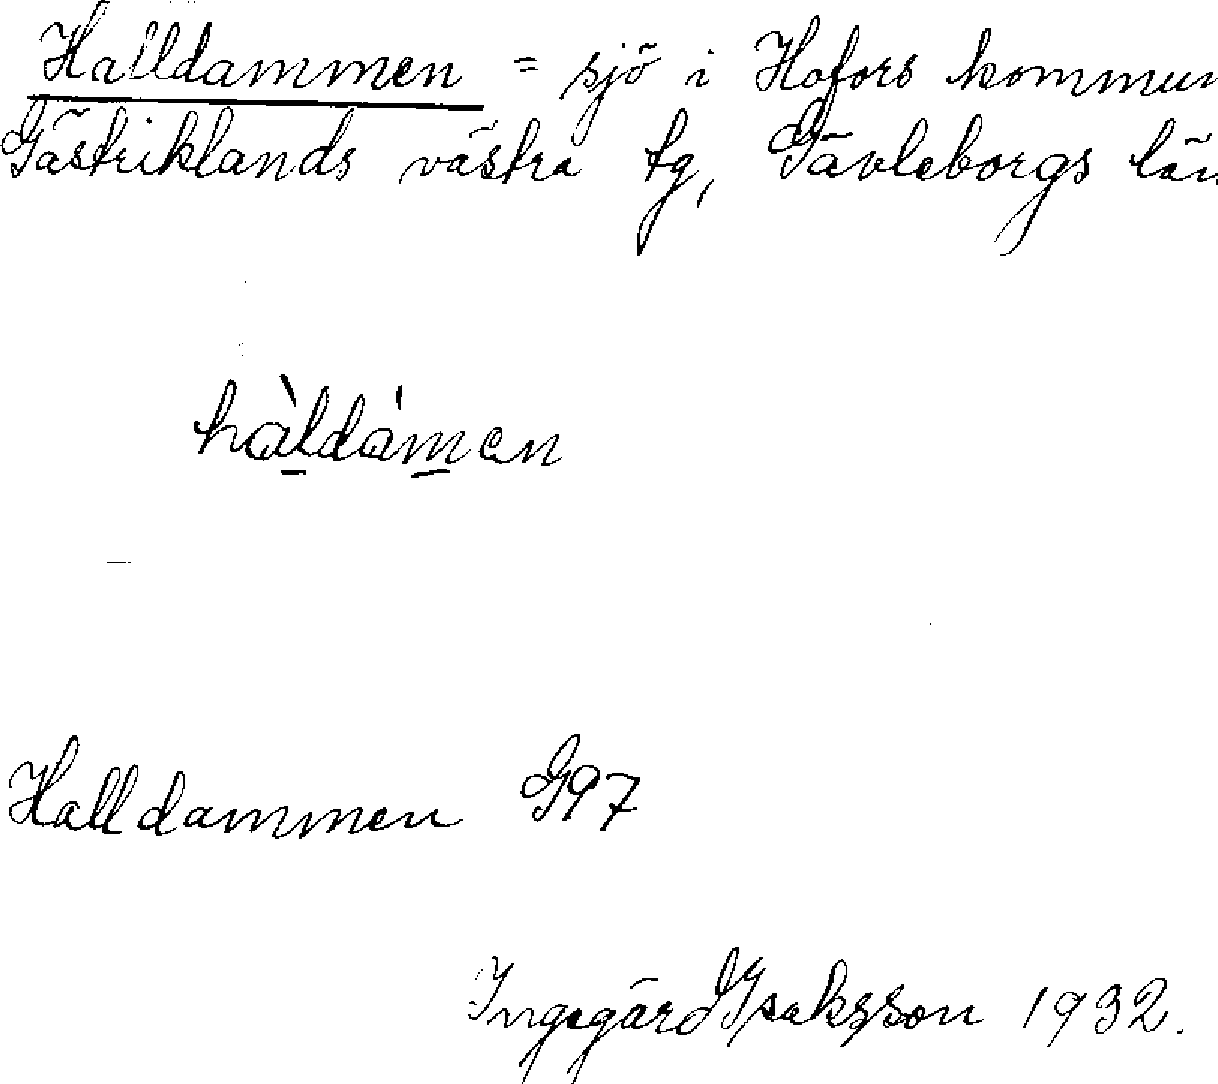 Halldammen = sjö i Hofors kommun
Gästriklands västra tg, Gävleborgs län
hàldám̲en
Halldammen G97
Ingegärd Isaksson 1932.